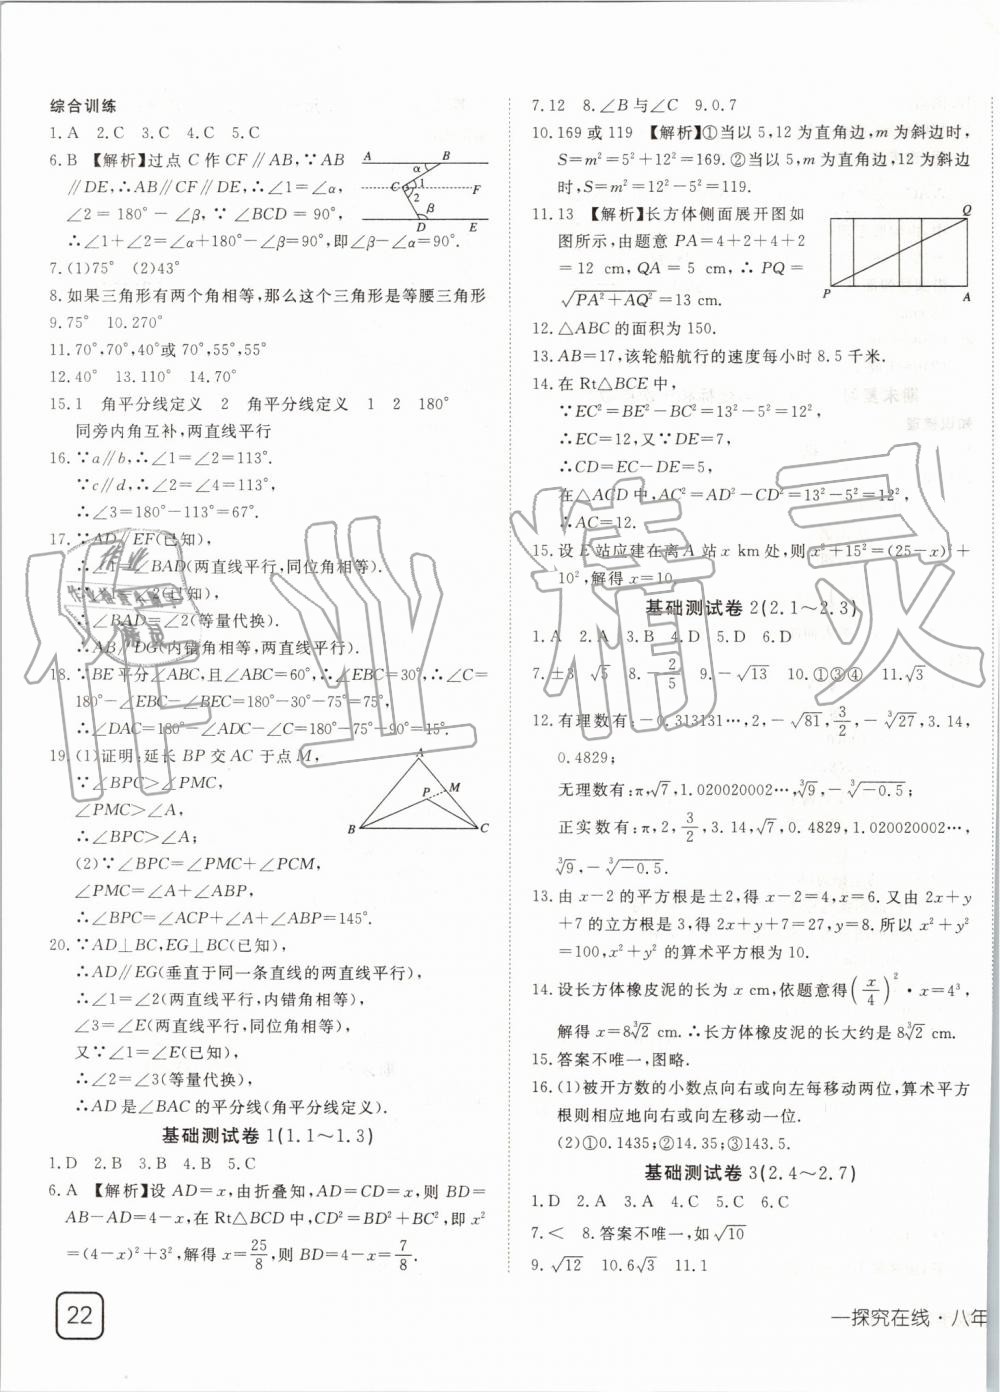 综合训练
1.A 2.C 3.C 4.C 5.C
6.B 【解析】过点C作CF∥AB,∵AB
∥DE,∴AB∥CF∥DE,∴∠1=∠α,
∠2=180°-∠β,∵∠BCD=90°,
∴∠1+∠2=∠α+180°-∠β=90°,即∠β-∠α=90°.
A B α C 1 2 F β D E
7.(1)75° (2)43°
8.如果三角形有两个角相等,那么这个三角形是等腰三角形
9.75° 10.270°
11.70°,70°,40°或70°,55°,55°
12.40° 13.110° 14.70°
15.1 角平分线定义 2 角平分线定义 1 2 180°
同旁内角互补,两直线平行
16.∵a∥b,∴∠1=∠2=113°.
∵c∥d,∴∠2+∠3=180°,
∴∠3=180°-113°=67°.
17.∵AD∥EF(已知),
∴∠1=∠BAD(两直线平行,同位角相等).
∵∠1=∠2(已知),
∴∠BAD=∠2(等量代换).
∴AB∥DG(内错角相等,两直线平行).
18.∵BE平分∠ABC,且∠ABC=60°,∴∠EBC=30°,∴∠C=
180°-∠EBC-∠BEC=180°-30°-75°=75°,
∴∠DAC=180°-∠ADC-∠C=180°-75°-90°=15°.
19.(1)证明:延长BP交AC于点M,
∵∠BPC>∠PMC,
∠PMC>∠A,
∴∠BPC>∠A;
(2)∵∠BPC=∠PMC+∠PCM,
∠PMC=∠A+∠ABP,
∴∠BPC=∠ACP+∠A+∠ABP=145°.
A P M B C
20.∵AD⊥BC,EG⊥BC(已知),
∴AD∥EG(垂直于同一条直线的两直线平行),
∴∠1=∠2(两直线平行,内错角相等),
∠3=∠E(两直线平行,同位角相等).
又∵∠1=∠E(已知),
∴∠2=∠3(等量代换),
∴AD是∠BAC的平分线(角平分线定义).
基础测试卷1(1.1～1.3)
1.D 2.B 3.B 4.B 5.C
6.A 【解析】设AD=x,由折叠知,AD=CD=x,则BD=
AB-AD=4-x,在Rt△BCD中,CD²=BD²+BC²,即x²
=(4-x)²+3²,解得x=25/8,则BD=4-x=7/8.
22
7.12 8.∠B与∠C 9.0.7
10.169或119 【解析】①当以5,12为直角边,m为斜边时,
S=m²=5²+12²=169.②当以5,m为直角边,12为斜边
时,S=m²=12²-5²=119.
11.13 【解析】长方体侧面展开图如
图所示,由题意PA=4+2+4+2
=12 cm,QA=5 cm,∴PQ=
√(PA²+AQ²)=13 cm.
Q P A
12.△ABC的面积为150.
13.AB=17,该轮船航行的速度每小时8.5千米.
14.在Rt△BCE中,
∵EC²=BE²-BC²=13²-5²=12²,
∴EC=12,又∵DE=7,
∴CD=EC-DE=5,
在△ACD中,AC²=AD²-CD²=13²-5²=12²,
∴AC=12.
15.设E站应建在离A站x km处,则x²+15²=(25-x)²+
10²,解得x=10.
基础测试卷2(2.1～2.3)
1.A 2.A 3.B 4.D 5.D 6.D
7.±3 √5 8.-2/5 9.-√13 10.①③④ 11.√3
12.有理数有:-0.313131…,2,-√81,3/2,-∛27,3.14,
0.4829;
无理数有:π,√7,1.020020002…,∛9,-∛-0.5;
正实数有:π,2,3/2,3.14,√7,0.4829,1.020020002…,
∛9,-∛-0.5.
13.由x-2的平方根是±2,得x-2=4,x=6.又由2x+y
+7的立方根是3,得2x+y+7=27,y=8.所以x²+y²
=100,x²+y²的算术平方根为10.
14.设长方体橡皮泥的长为x cm,依题意得(x/4)²·x=4³,
解得x=8∛2 cm.∴长方体橡皮泥的长大约是8∛2 cm.
15.答案不唯一,图略.
16.(1)被开方数的小数点向右或向左每移动两位,算术平方
根则相应地向右或向左移动一位.
(2)①0.1435;②14.35;③143.5.
基础测试卷3(2.4～2.7)
1.D 2.A 3.A 4.D 5.C 6.C
7.< 8.答案不唯一,如√10
9.√12 10.6√3 11.1
一探究在线·八年
作业精灵